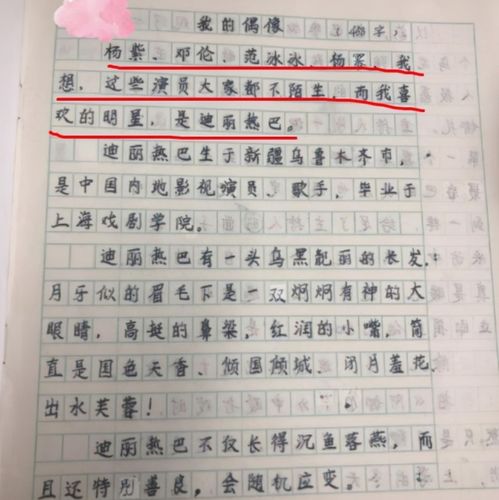 我的偶像
杨紫、邓伦、范冰冰、杨幂,我
想,这些演员大家都不陌生,而我喜
欢的明星,是迪丽热巴。
迪丽热巴生于新疆乌鲁木齐市,
是中国内地影视演员、歌手,毕业于
上海戏剧学院。
迪丽热巴有一头乌黑靓丽的长发,
月牙似的眉毛下是一双炯炯有神的大
眼睛,高挺的鼻梁,红润的小嘴,简
直是国色天香、倾国倾城、闭月羞花、
出水芙蓉!
迪丽热巴不仅长得沉鱼落燕,而
且还特别善良,会随机应变。